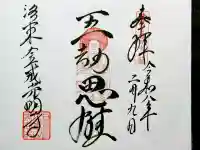 奉拝 令和六年
二月九日
五劫思惟
洛東 金戒光明寺